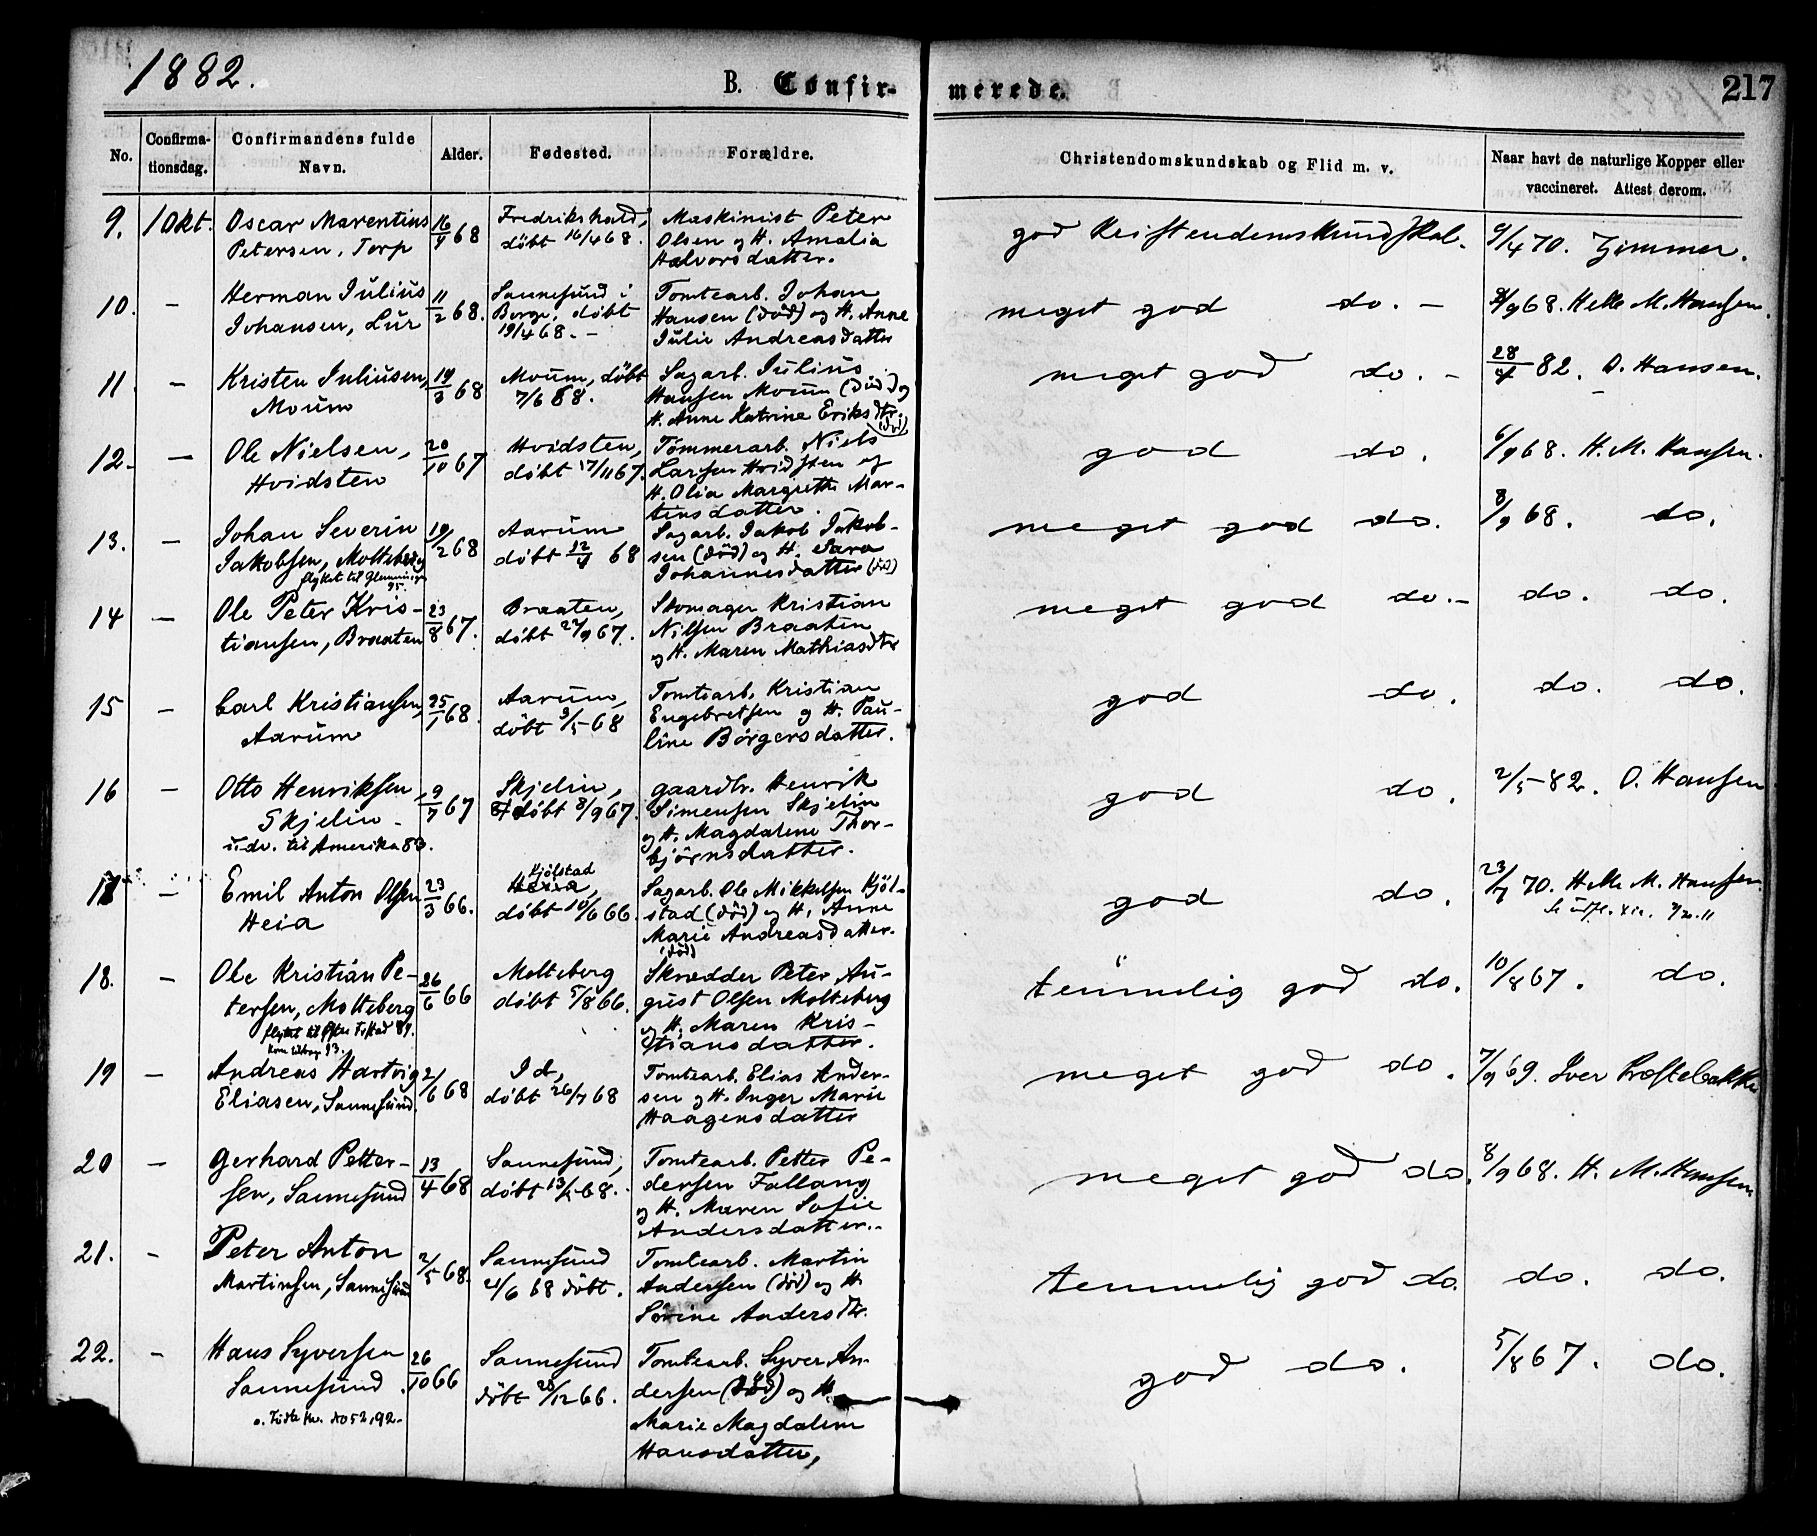 1882.
B. Confir- merede. 217
No. Confirma-tionsdag. Confirmandens fulde Navn. Alder. Fødested. Forældre. Christendomskundskab og Flid m. v. Naar havt de naturlige Kopper eller vaccineret. Attest derom.
9. 1 Okt. Oscar Marentius 16/4 68 Fredrikshald, Maskinist Peter god Kristendomskundskab. 9/4 70. Zimmer.
Petersen, Torp døbt 16/4 68. Olsen og H. Amalia
Halvorsdatter.
10. – Herman Julius 11/2 68. Sannesund i Tomtearb. Johan meget god do. – 8/9 68. Helle M. Hansen.
Johansen, Lur Borge, døbt Hansen (død) og H. Anne
19/4 68. – Julie Andreasdatter
11. – Kristen Juliusen, 19/3 68 Moum, døbt Sagarb. Julius meget god do. – 28/4 82. O. Hansen.
Moum 7/6 68. Hansen Moum (død) og
H. Anne Katrine Eriksdtr. (død)
12. – Ole Nielsen, 20/10 67 Hvidsten, Tømmerarb. Niels god do. 6/9 68. H. M. Hansen.
Hvidsten døbt 17/11 67. Larssen Hvidsten og
H. Olia Margrethe Mar-
tinsdatter.
13. – Johan Severin 19/2 68 Aarum Sagarb. Jakob Jakob- meget god do. 8/9 68. do.
Jakobsen, Molteberg døbt 12/4 68 sen (død) og H. Sara
flyttet til Glemminge 95. Johannesdatter (død)
14 – Ole Peter Kris- 23/8 67. Braaten, Skomager Kristian meget god do. – do. do.
tiansen, Braaten døbt 27/9 67. Nilsen Braaten
og H. Maren Mathiasdtr
15 – Carl Kristiansen, 25/1 68. Aarum, Tomtearb. Kristian god do. do. do.
Aarum døbt 3/5 68 Engebretsen og H. Pau-
line Børgersdatter.
16 – Otto Henriksen, 9/7 67 Skjelin, gaardbr. Henrik god do. 2/5 82. O. Hansen
Skjelin – døbt 8/9 67. Simensen Skjelin
udv. til Amerika 83. og H. Magdalene Thor-
bjørnsdatter.
17 – Emil Anton Olsen 23/3 66. Kjølstad Sagarb. Ole Mikkelsen Kjøl- god do. 23/7 70. Helle M. Hansen
Heia Heia, døbt 10/6 66. stad (død) og H. Anne
Marie Andreasdatter.
(død)
18. – Ole Kristian Pe- 26/6 66 Molteberg Skrædder Peter Au- temmelig god do. 10/8 67. do.
tersen, Molteberg døbt 5/8 66. gust Olsen Molteberg
og H. Maren Kris-
tiansdatter.
19 – Andreas Hartvig 2/6 68 Id, Tomtearb. Elias Ander- meget god do. 7/9 69. Iver Præstebakke
Eliasen, Sannesund. døbt 26/7 68 sen og H. Inger Marie
Haagensdatter
20 – Gerhard Petter- 13/4 68 Sannesund, Tomtearb. Petter Pe- meget god do. 8/9 68. H. M. Hansen
sen, Sannesund døbt 13/5 68. dersen Fallang
og H. Maren Sofie
Andersdatter.
21. – Peter Anton 2/5 68. Sannesund Tomtearb. Martin temmelig god do. do. do.
Martinsen, Sannesund 21/6 68 døbt. Andersen (død) og H.
Sørine Andersdtr.
22. – Hans Syversen 26/10 66 Sannesund Tomtearb. Syver An- god do. 5/8 67. do.
Sannesund. døbt 26/12 66. dersen (død) og H.
Marie Magdalene
Hansdatter,